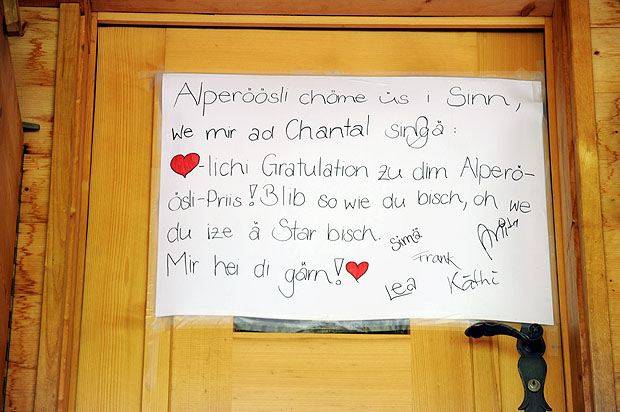 Alperöösli chöme üs i Sinn,
We mir ad Chantal singä:
-lichi Gratulation zu dim Alperö-
ösli-Priis! Blib so wie du bisch, oh we
du ize ä Star bisch.
Mir hei di gärn!
Simä
Frank
Lea
Käthi